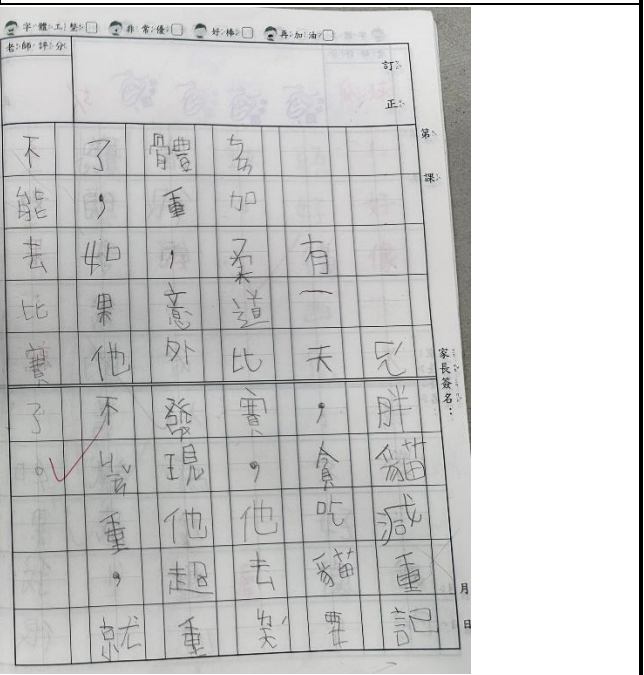 字體工整□ 非常優□ 好棒□ 再加油□
老師評分
訂正:
第 課
家長簽名:
月 日
胖貓減重記
有一天,貪吃貓要
加柔道比賽,他去
體重,意外發現他超重
了,如果他不重,就
不能去比賽了。